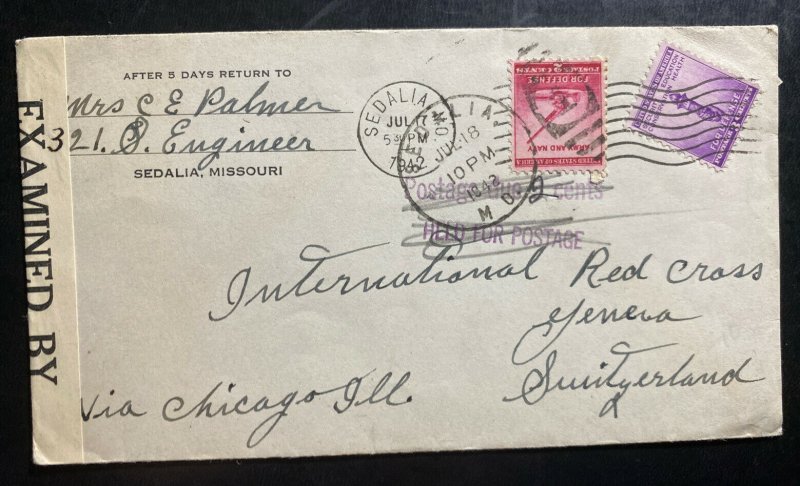 AFTER 5 DAYS RETURN TO
Mrs C E Palmer
321. S. Engineer
SEDALIA, MISSOURI
EXAMINED BY
SEDALIA
JUL 17
5 30 PM
1942
MO.
SEDALIA
JUL 18
10 PM
1942
MO.
FOR DEFENSE
POSTAGE 2 CENTS
ARMY AND NAVY
UNITED STATES OF AMERICA
FOR DEFENSE
Postage due 2 cents
HELD FOR POSTAGE
International Red Cross
Geneva
Switzerland
Via Chicago Ill.